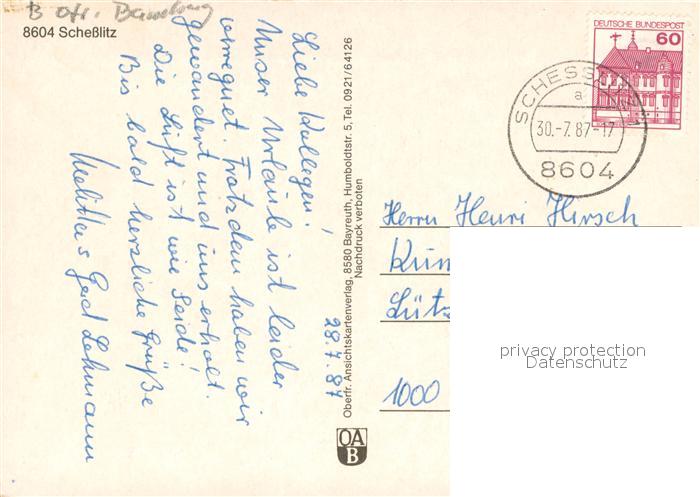 B Ofr. Bamberg
8604 Scheßlitz
28.7.87
Liebe Kollegen!
Unser Urlaub ist leider
verregnet. Trotzdem haben wir
gewandert und uns erholt.
Die Luft ist wie Seide!
Bis bald herzliche Grüße
Gerd Lehmann
Oberfr. Ansichtskartenverlag, 8580 Bayreuth, Humboldtstr. 5, Tel. 0921/64126
Nachdruck verboten
OA
B
DEUTSCHE BUNDESPOST
60
SCHESSLITZ 1
a
30.-7.87-17
8604
Herrn Henri Hirsch
Kün
Lütz
1000
privacy protection
Datenschutz